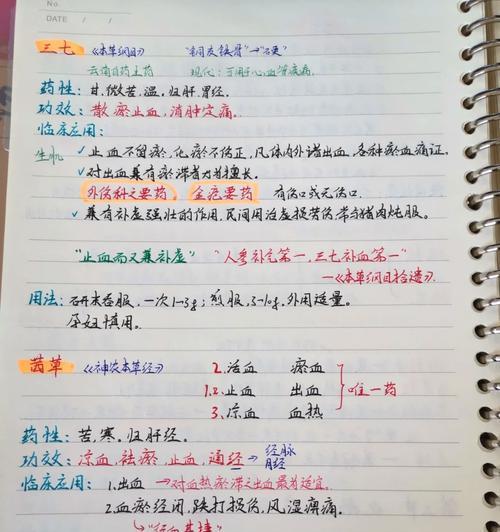 No.
DATE / /
三七 《本草纲目》 "铜皮铁骨"→"硬"
云南白药主药 现代:可用心血管疾病.
药性:甘、微苦,温,归肝胃经.
功效:散瘀止血,消肿定痛。
临床应用:
生肌 ✓止血不留瘀,化瘀不伤正,凡体内外诸出血,各种瘀血痛证.
✓对出血兼有瘀滞者尤为擅长。
外伤科之要药。 金疮要药 有伤口或无伤口.
✓兼有补虚强壮的作用,民间用治虚损劳伤,常与猪肉炖服。
"止血而又兼补虚" "人参补气第一,三七补血第一"
—《本草纲目拾遗》.
用法:研末吞服,一次1-3g;煎服,3-10g.外用适量。
孕妇慎用。
茜草 《神农本草经》 2.活血 瘀血
1.2.止血 出血 唯一药
3.凉血 血热
药性:苦,寒.归肝经.
功效:凉血,祛瘀,止血,通经→经脉
月经
临床应用:1.出血→对血热瘀滞之出血最为适宜.
2.血瘀经闭,跌打损伤,风湿痹痛.